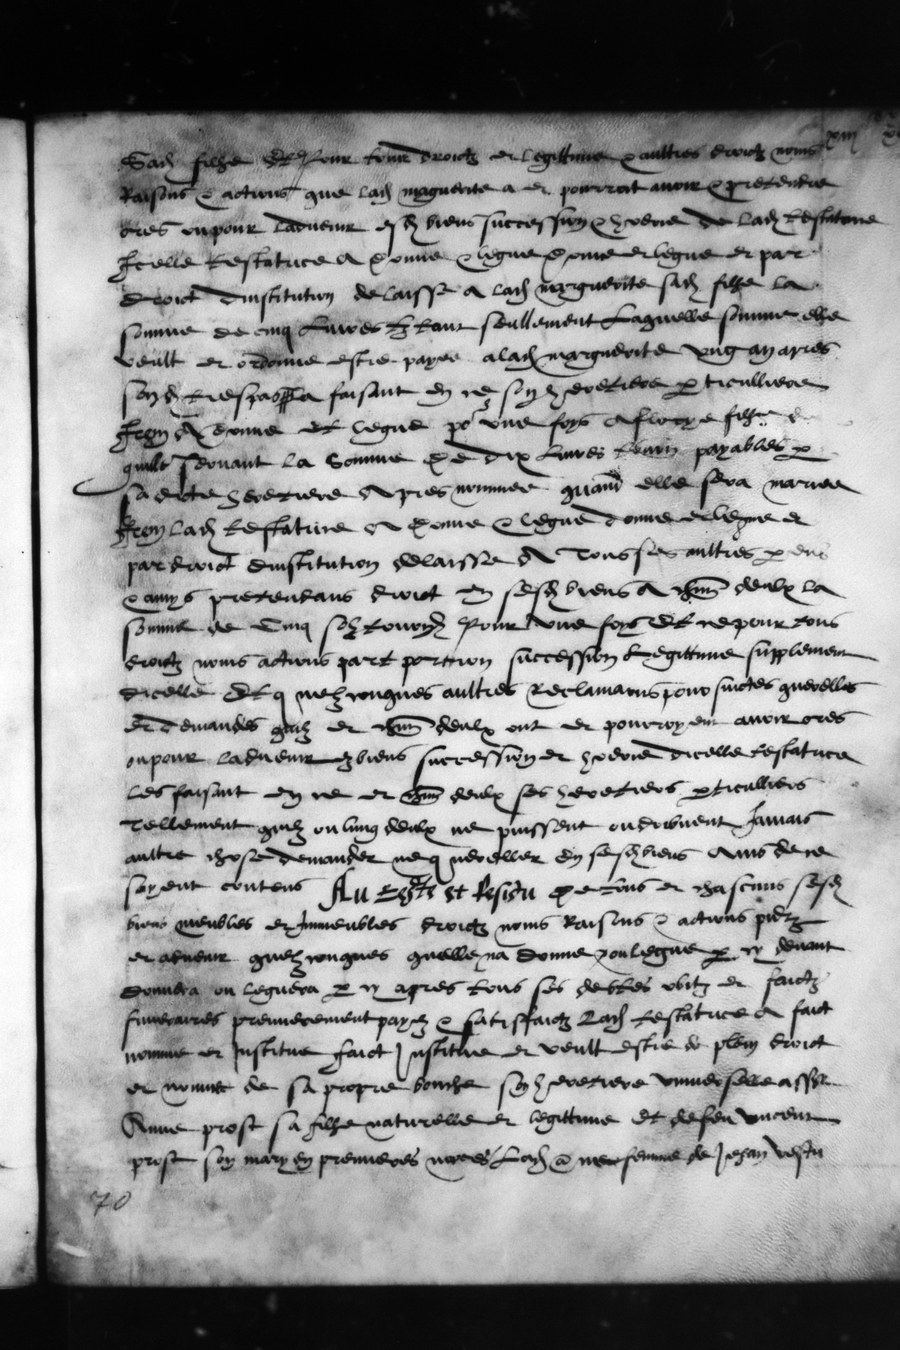 xiiij
Sad filhe Et pour tous droictz et legittime & aultres droictz noms
Raisons & actions que lad marguerite a et pourroit avoir & pretendre
ores ou pour ladvenir esd biens succession & hoerie de lad testatrice
Icelle testatrice a donne & legue donne et legue et par
droict dinstitution delaisse a lad marguerite sad filhe la
somme de cinq livres tz tant seullement laquelle somme elle
veult et ordonne estre payee a lad marguerite ung an apres
sond trespas la faisant en ce son heretiere particulliere
Item A donne et legue po une foys a filhe
servant la somme de dix livres tourn payables p
sa dicte heretiere apres nommee quand elle sera mariee
Item lad testatrice a donne & legue donne et legue et
par droict dinstitution delaisse A tous ses aultres parens
& amys pretendans droict en sesd biens a chm deulx la
somme de Cinq solz tournz pour une foys Et ce pour tous
droictz noms actions part portion succession legittime supplement
dicelle Et q melzconques aultres reclamations poursuictes querelles
et demandes quilz et chm deulx ont et pourroyent avoir ores
ou pour ladvenir es biens succession et hoerie dicelle testatrice
les faisant en ce et chm deulx ses heretiers particulliers
tellement quilz ou lung deulx ne puissent ou doibvent Jamais
aultre chose demander ne quereller en sesd biens Ains de ce
soyent contens Au Reste et Residu de tous et chascuns sesd
biens meubles et Immeubles droictz noms Raisons & actions pntz
et advenir quelzconques quelle na donne & ou legue p cy devant
donnera ou leguera p cy apres tous ses debtes obitz et faictz
funeraires premierement payez & satisfaictz Lad testatrice a faict
nomme et Institue faict Institue et veult estre de plein droict
et nomme de sa propre bouche son heretiere universelle
Anne prost sa filhe naturelle et legittime et de feu vincent
prost son mary en premieres nopces lad femme de Jehan
70